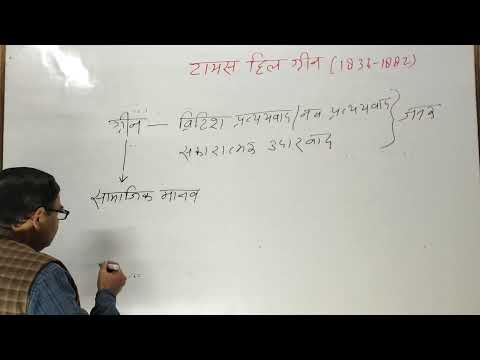 टामस हिल ग्रीन (1836-1882)
ग्रीन — ब्रिटिश प्रत्ययवाद / नव प्रत्ययवाद } जनक
सकारात्मक उदारवाद
सामाजिक मानव